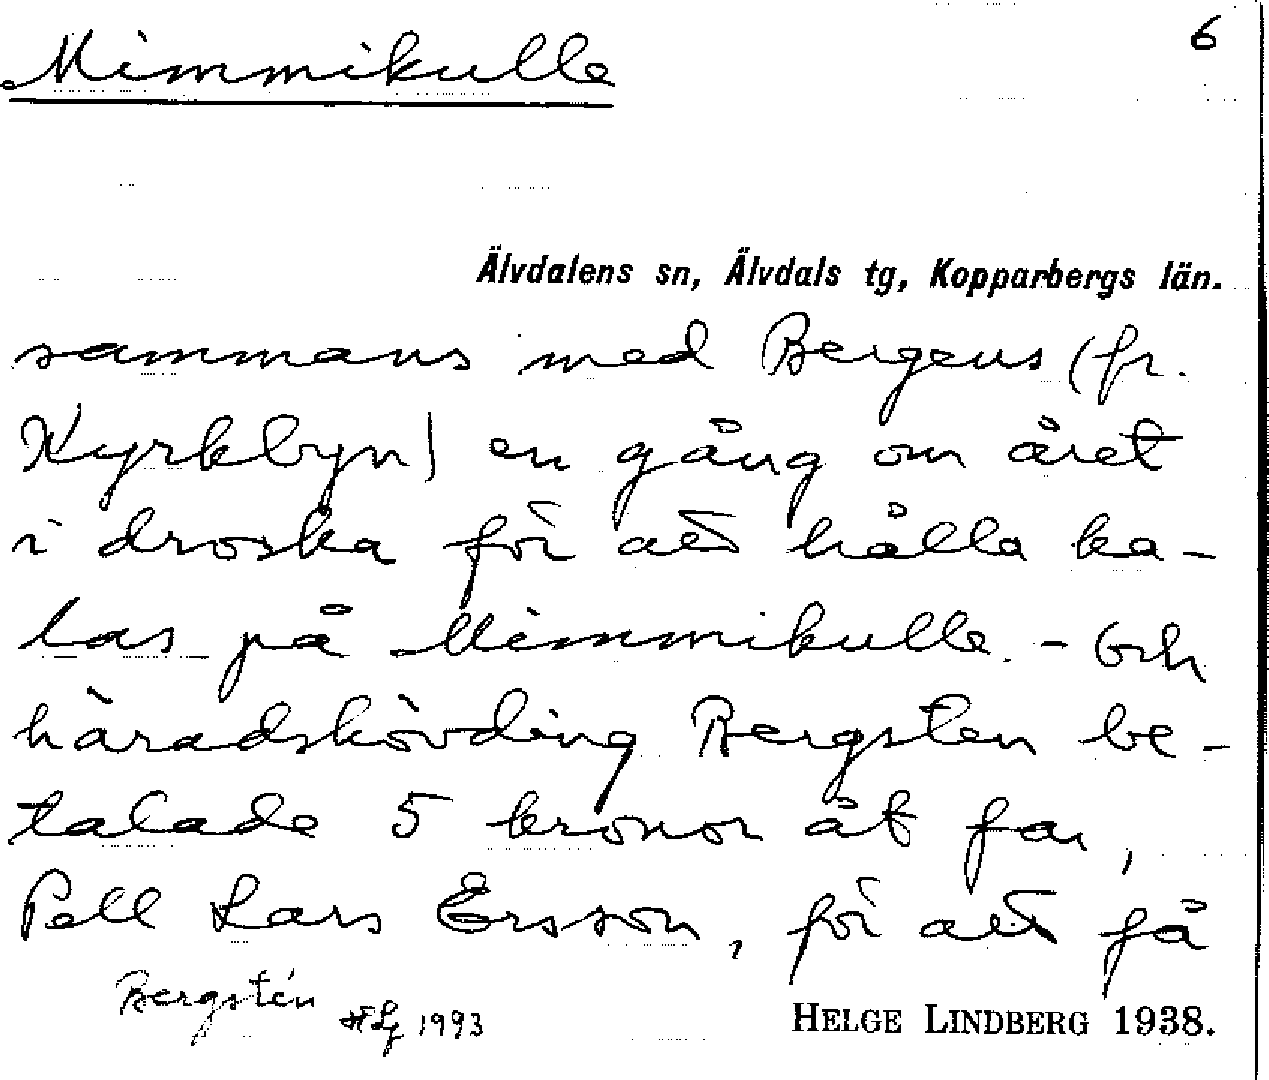 Mimmikulle 6
Älvdalens sn, Älvdals tg, Kopparbergs län.
sammans med Bergens (fr.
Kyrkbyn) en gång om året
i droska för att hålla ka-
las på Mimmikulle. - Och
häradshövding Bergsten be-
talade 5 kronor åt far,
Pell Lars Ersson, för att få
Bergstén HLg 1993 HELGE LINDBERG 1938.